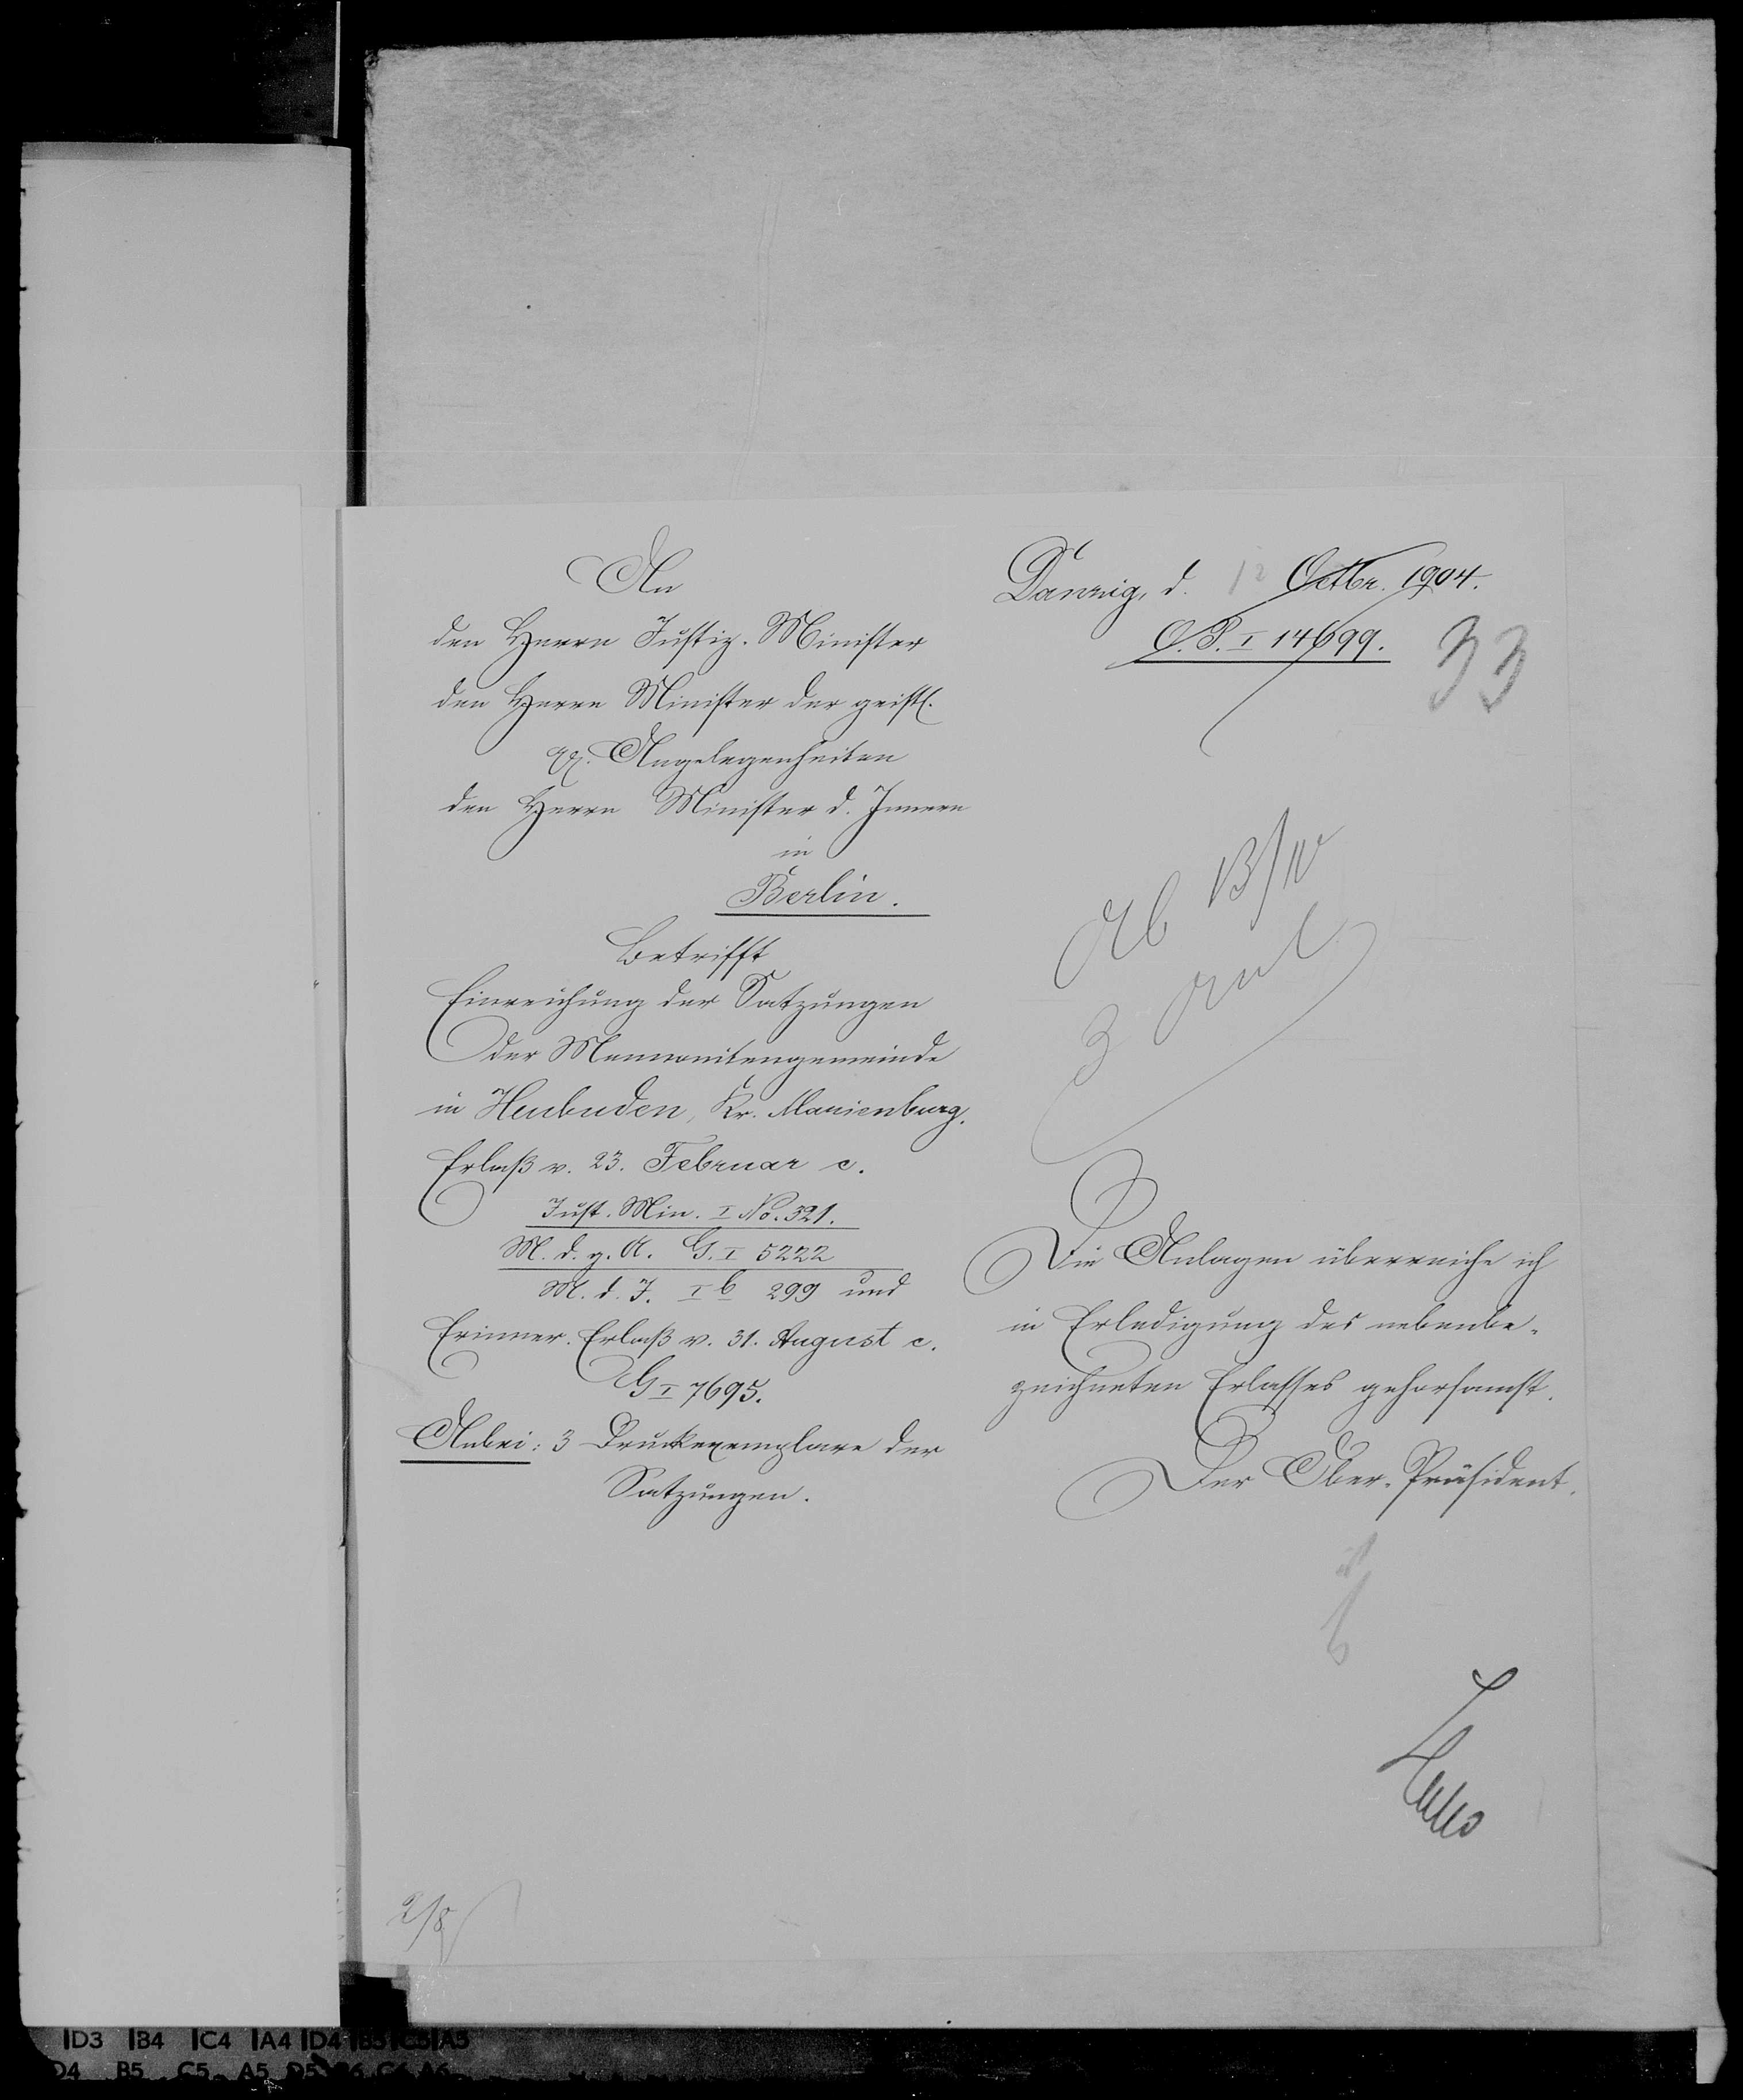 An
den Herrn Justiz-Minister
den Herrn Minister der geistl.
pp. Angelegenheiten
den Herrn Minister d. Innern
in
Berlin.
Betrifft
Einreichung der Satzungen
der Mennonitengemeinde
in Heubuden, Kr. Marienburg.
Erlaß v. 23. Februar c.
Just. Min. I No. 321.
M. d. g. A. G. I 5222
M. d. J. I b 299 und
Erinner. Erlaß v. 31. August c.
G I 7695.
Anbei: 3 Druckexemplare der
Satzungen.
2/8
Danzig, d. 12 Octbr. 1904.
O. P. I 14699.
33
Ab 13/10
3 Anl
Die Anlagen überreiche ich
in Erledigung des nebenbe-
zeichneten Erlasses gehorsamst.
Der Ober-Präsident.
D3 B4 C4 A4 D4 B5 C5 A5
D4 B5 C5 A5 D5 B6 C6 A6